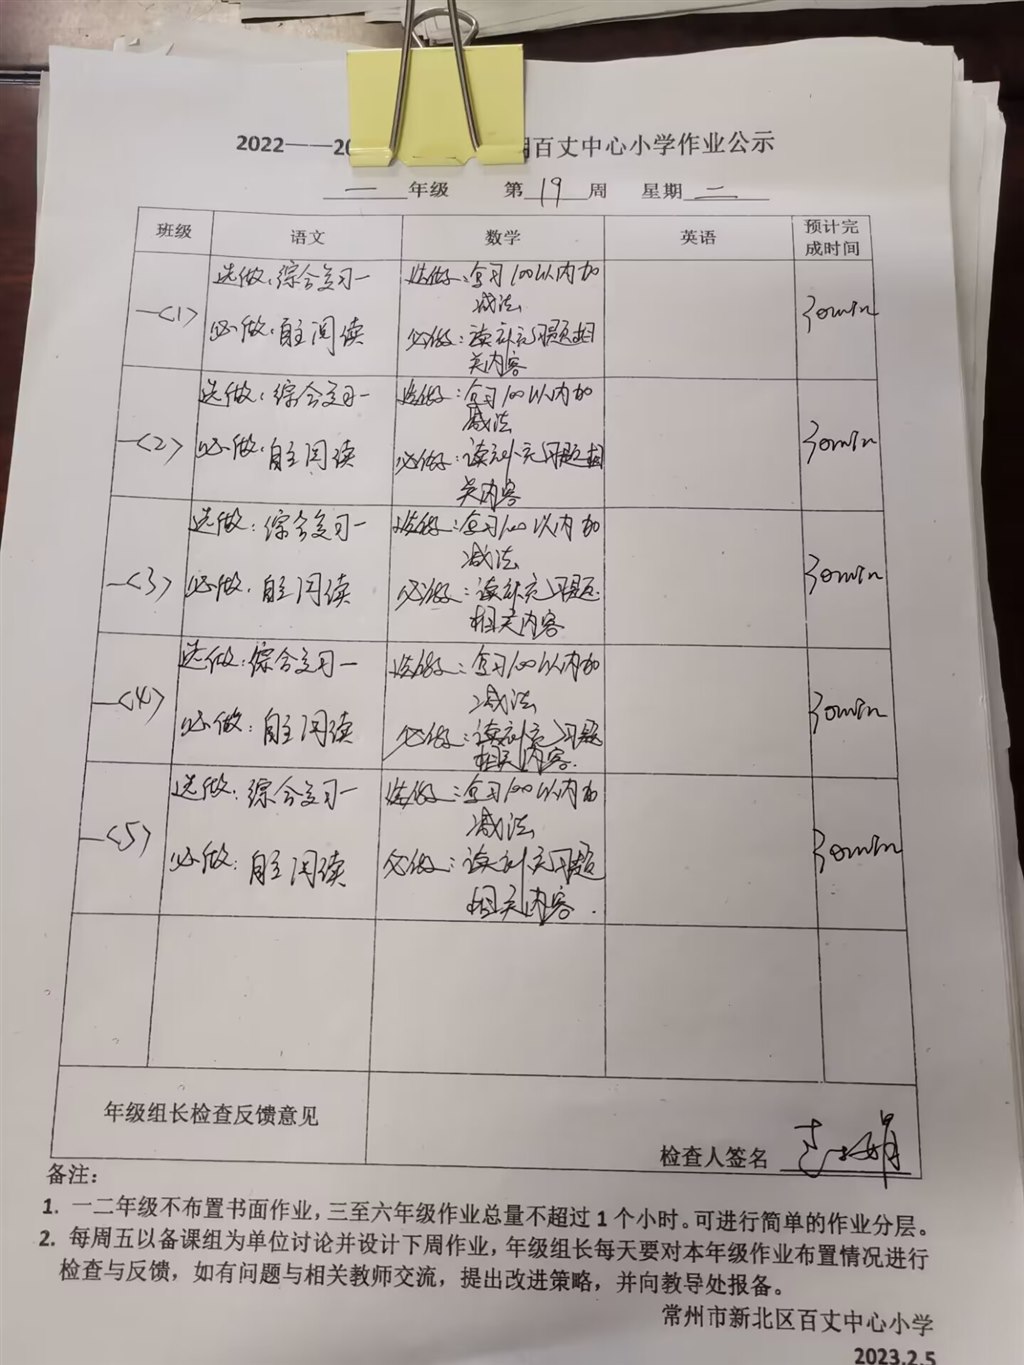 2022——20 期百丈中心小学作业公示
一 年级 第 19 周 星期 二
班级 语文 数学 英语 预计完成时间
一<1> 选做:综合复习一 选做:复习100以内加减法 30min
必做:自主阅读 必做:读补充习题相关内容
一<2> 选做:综合复习一 选做:复习100以内加减法 30min
必做:自主阅读 必做:读补充习题相关内容
一<3> 选做:综合复习一 选做:复习100以内加减法 30min
必做:自主阅读 必做:读补充习题相关内容
一<4> 选做:综合复习一 选做:复习100以内加减法 30min
必做:自主阅读 必做:读补充习题相关内容.
一<5> 选做:综合复习一 选做:复习100以内加减法 30min
必做:自主阅读 必做:读补充习题相关内容.
年级组长检查反馈意见
检查人签名
备注:
1. 一二年级不布置书面作业,三至六年级作业总量不超过1个小时。可进行简单的作业分层。
2. 每周五以备课组为单位讨论并设计下周作业,年级组长每天要对本年级作业布置情况进行
检查与反馈,如有问题与相关教师交流,提出改进策略,并向教导处报备。
常州市新北区百丈中心小学
2023.2.5